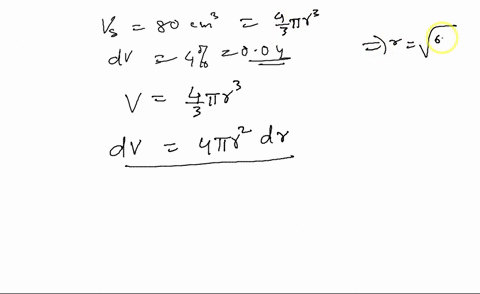 Vs = 80 cm³ = 4/3 πr³
dV = 4% = 0.04
V = 4/3 πr³
dV = 4πr² dr
=> r = √6